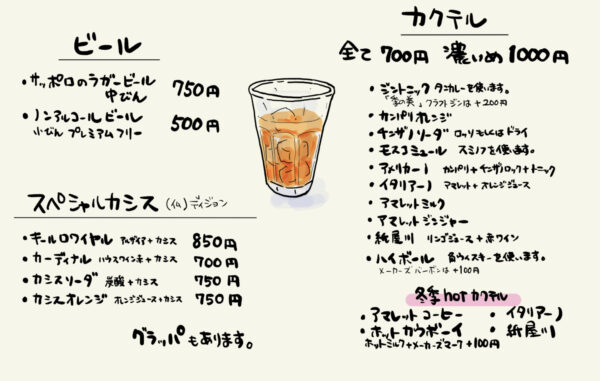 ビール
・サッポロのラガービール 750円
中びん
・ノンアルコールビール 500円
小びん プレミアムフリー
スペシャルカシス (仏)ディジョン
・キールロワイヤル カシス 850円
・カーディナル ハウスワイン赤+カシス 700円
・カシスソーダ 炭酸+カシス 750円
・カシスオレンジ オレンジジュース+カシス 750円
グラッパもあります。
カクテル
全て700円 濃いめ1000円
・ジントニック タンカレーを使います。
「季の美」クラフトジンは+200円
・カンパリオレンジ
・チンザノソーダ ロッソもしくはドライ
・モスコミュール スミノフを使います。
・アメリカーノ カンパリ+チンザノロッソ+トニック
・イタリアーノ アマレット+オレンジジュース
・アマレットミルク
・アマレットジンジャー
・紙屋川 リンゴジュース+赤ワイン
・ハイボール 角ウィスキーを使います。
メーカーズバーボンは+100円
冬季hotカクテル
・アマレットコーヒー ・イタリアーノ
・ホットカウボーイ ・紙屋川
ホットミルク+メーカーズマーク+100円